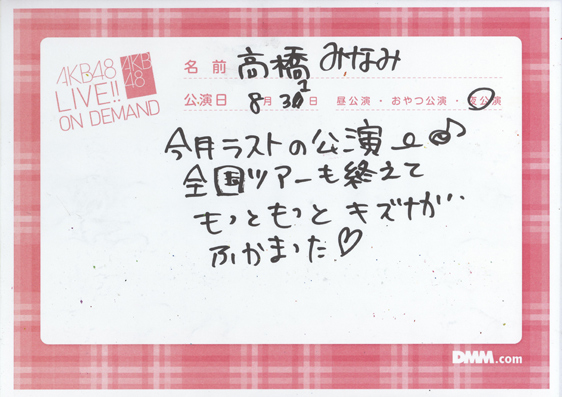 AKB48
LIVE!!
ON DEMAND
AKB
48
名前 高橋みなみ
公演日 8月31日 昼公演・おやつ公演・夜公演
今月ラストの公演
全国ツアーも終えて
もっともっとキズナが…
ふかまった♡
DMM.com